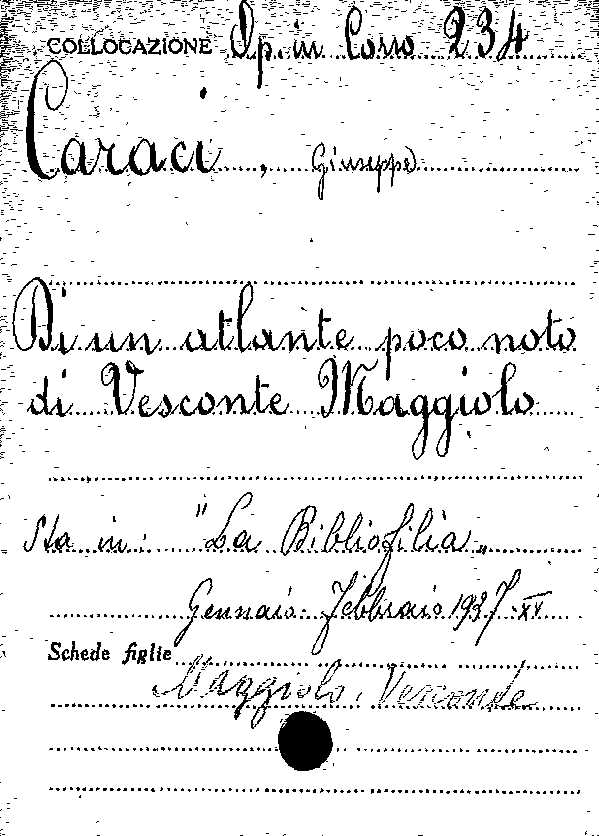 COLLOCAZIONE Op. in Corso 234
Caraci, Giuseppe
Di un atlante poco noto
di Vesconte Maggiolo
Sta in: "La Bibliofilia"
Gennaio-Febbraio 1937-XV
Schede figlie
Maggiolo, Vesconte